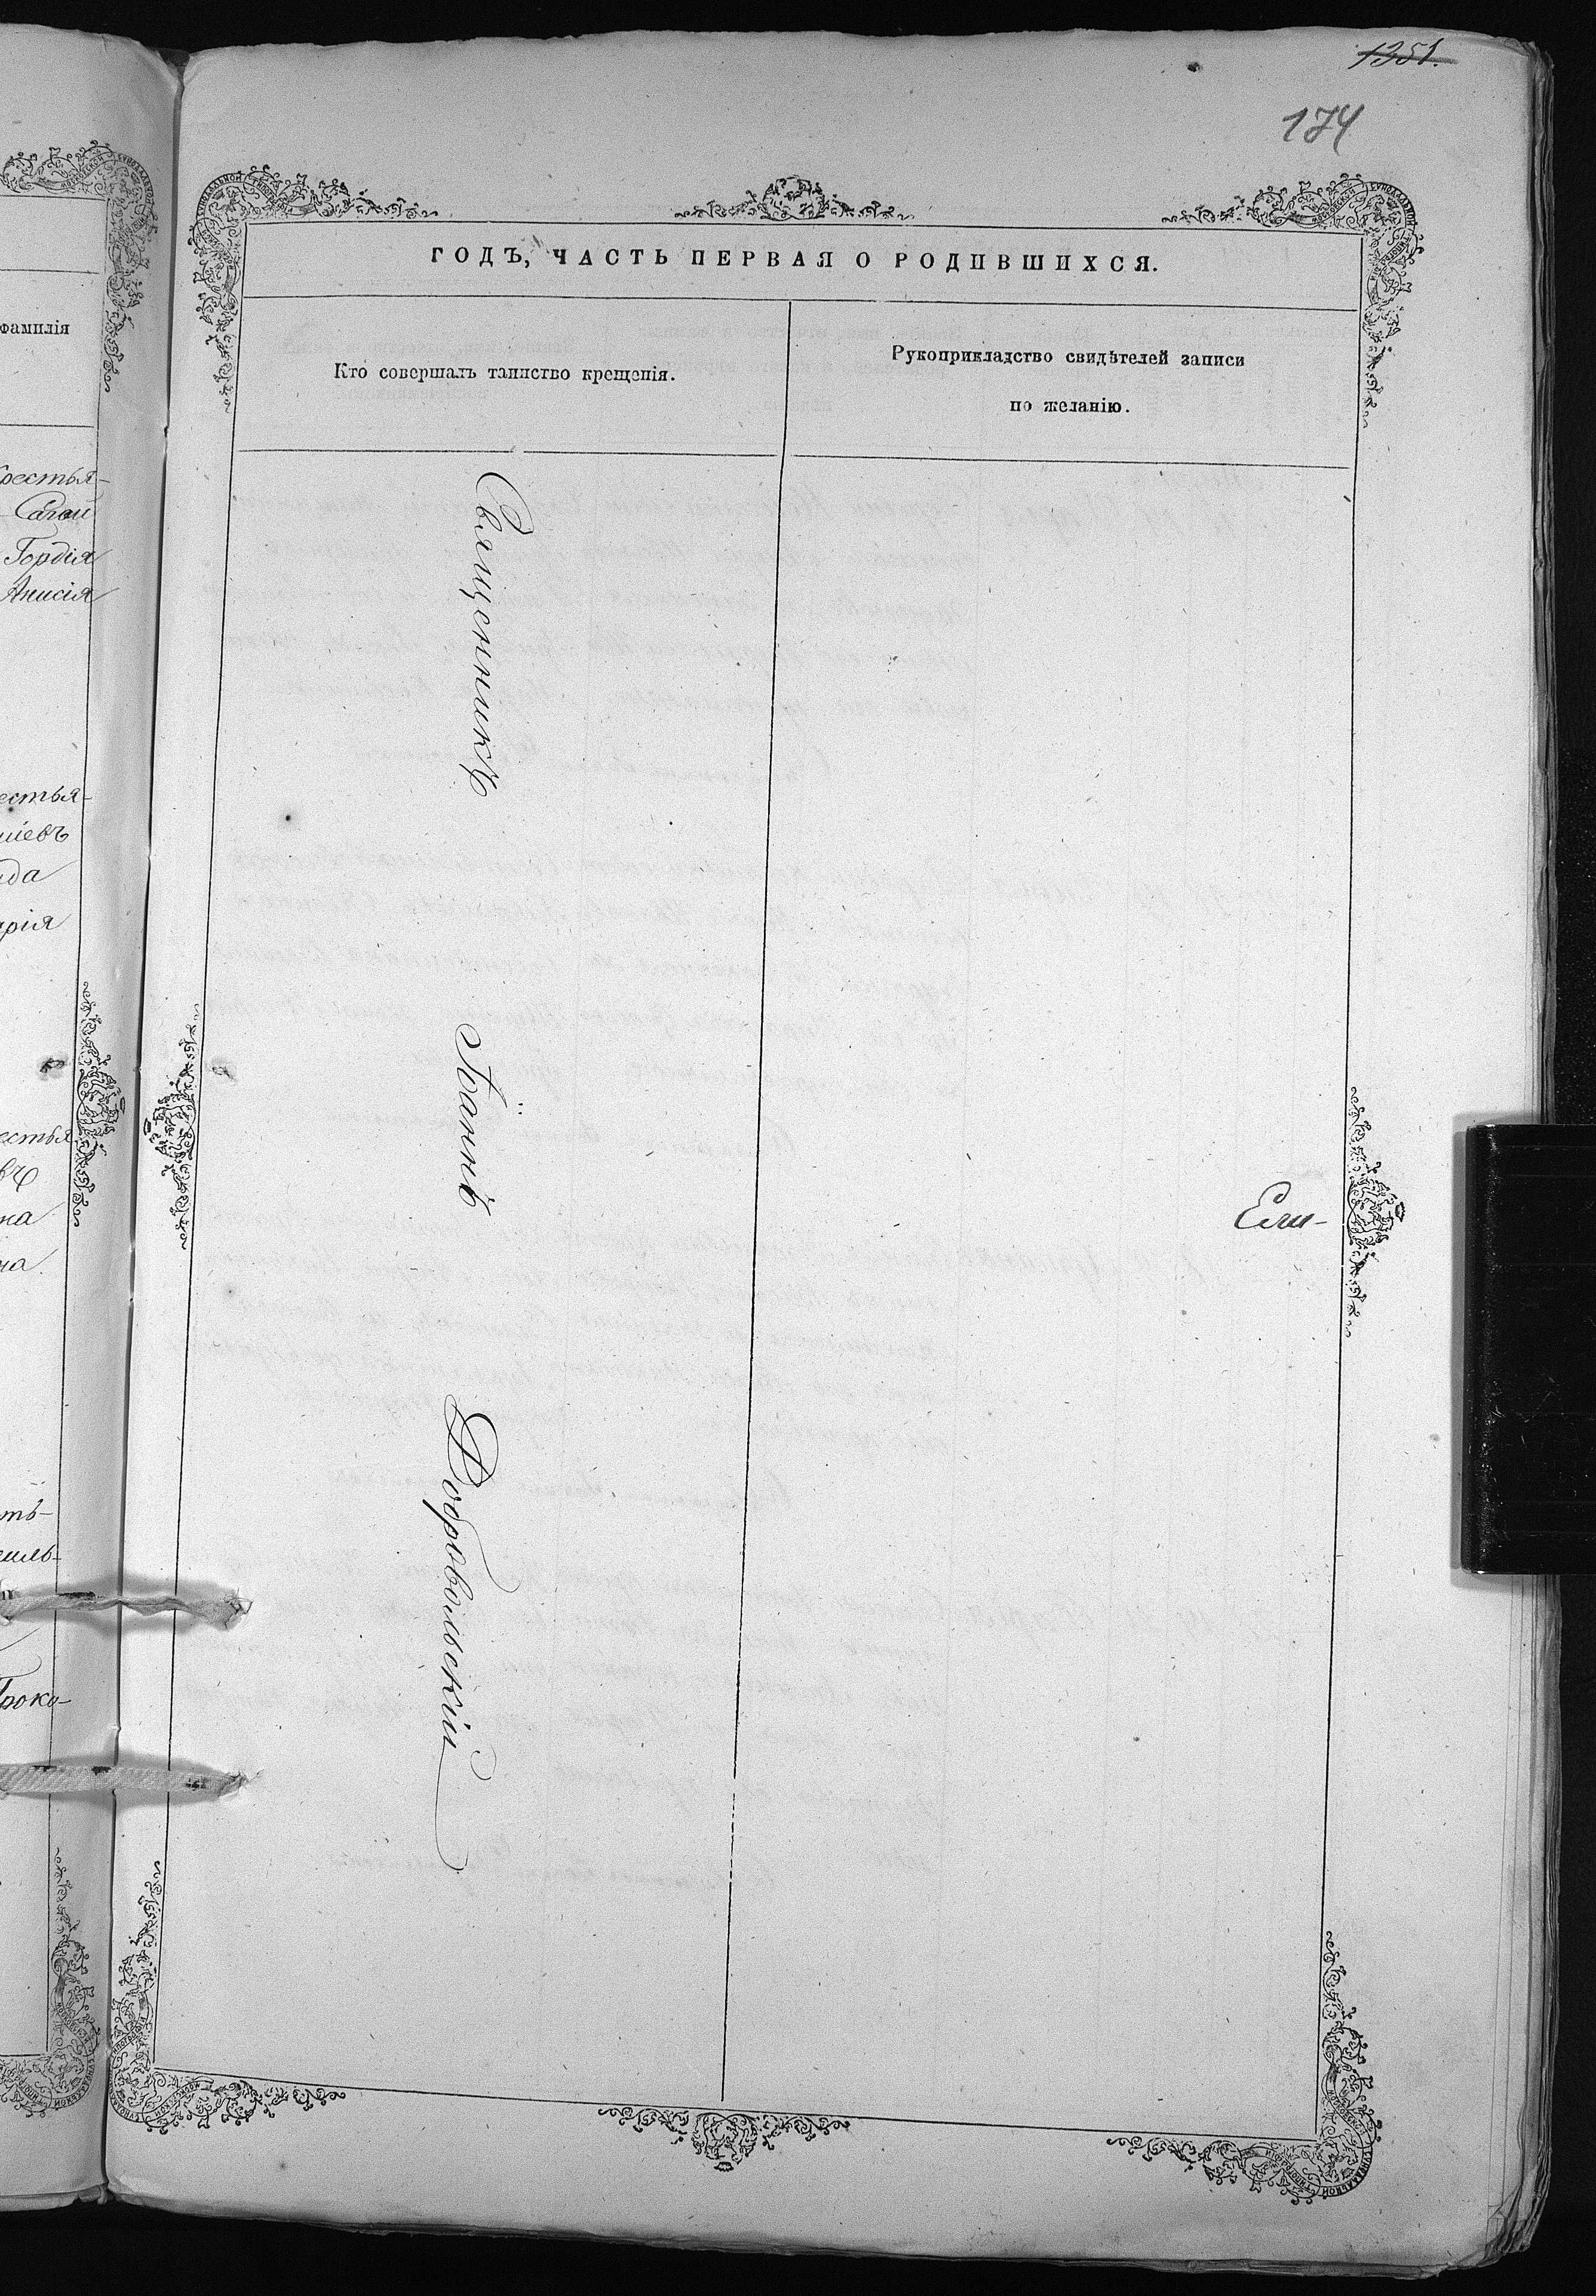 1351.
174
ГОДЪ, ЧАСТЬ ПЕРВАЯ О РОДИВШИХСЯ.
Кто совершалъ таинство крещенія.
Рукоприкладство свидѣтелей записи
по желанію.
Священникъ Іоаннъ Добровольскій
Ели-
фамилія
крестья-
Гордія
Анисія
естья-
арія
естья
Проко-